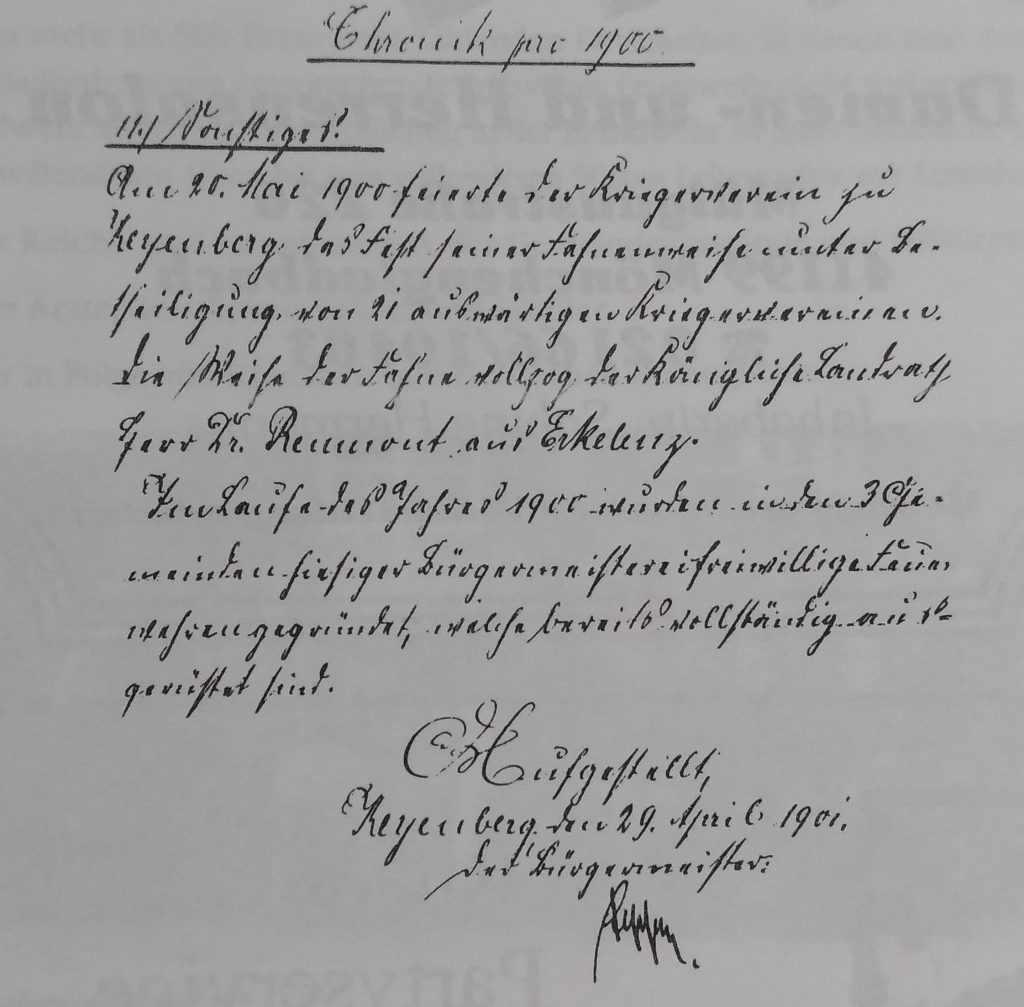 Chronik pro 1900
11.) Sonstiges.
Am 20. Mai 1900 feierte der Kriegerverein zu
Keyenberg das Fest seiner Fahnenweihe unter Be-
theiligung von 21 auswärtigen Kriegervereinen.
Die Weihe der Fahne vollzog der Königliche Landrath
Herr Dr. Reumont aus Erkelenz.
Im Laufe des Jahres 1900 wurden in den 3 Ge-
meinden hiesiger Bürgermeisterei freiwillige Feuer
wehren gegründet, welche bereits vollständig aus-
gerüstet sind.
Aufgestellt,
Keyenberg den 29. April 1901.
Der Bürgermeister: